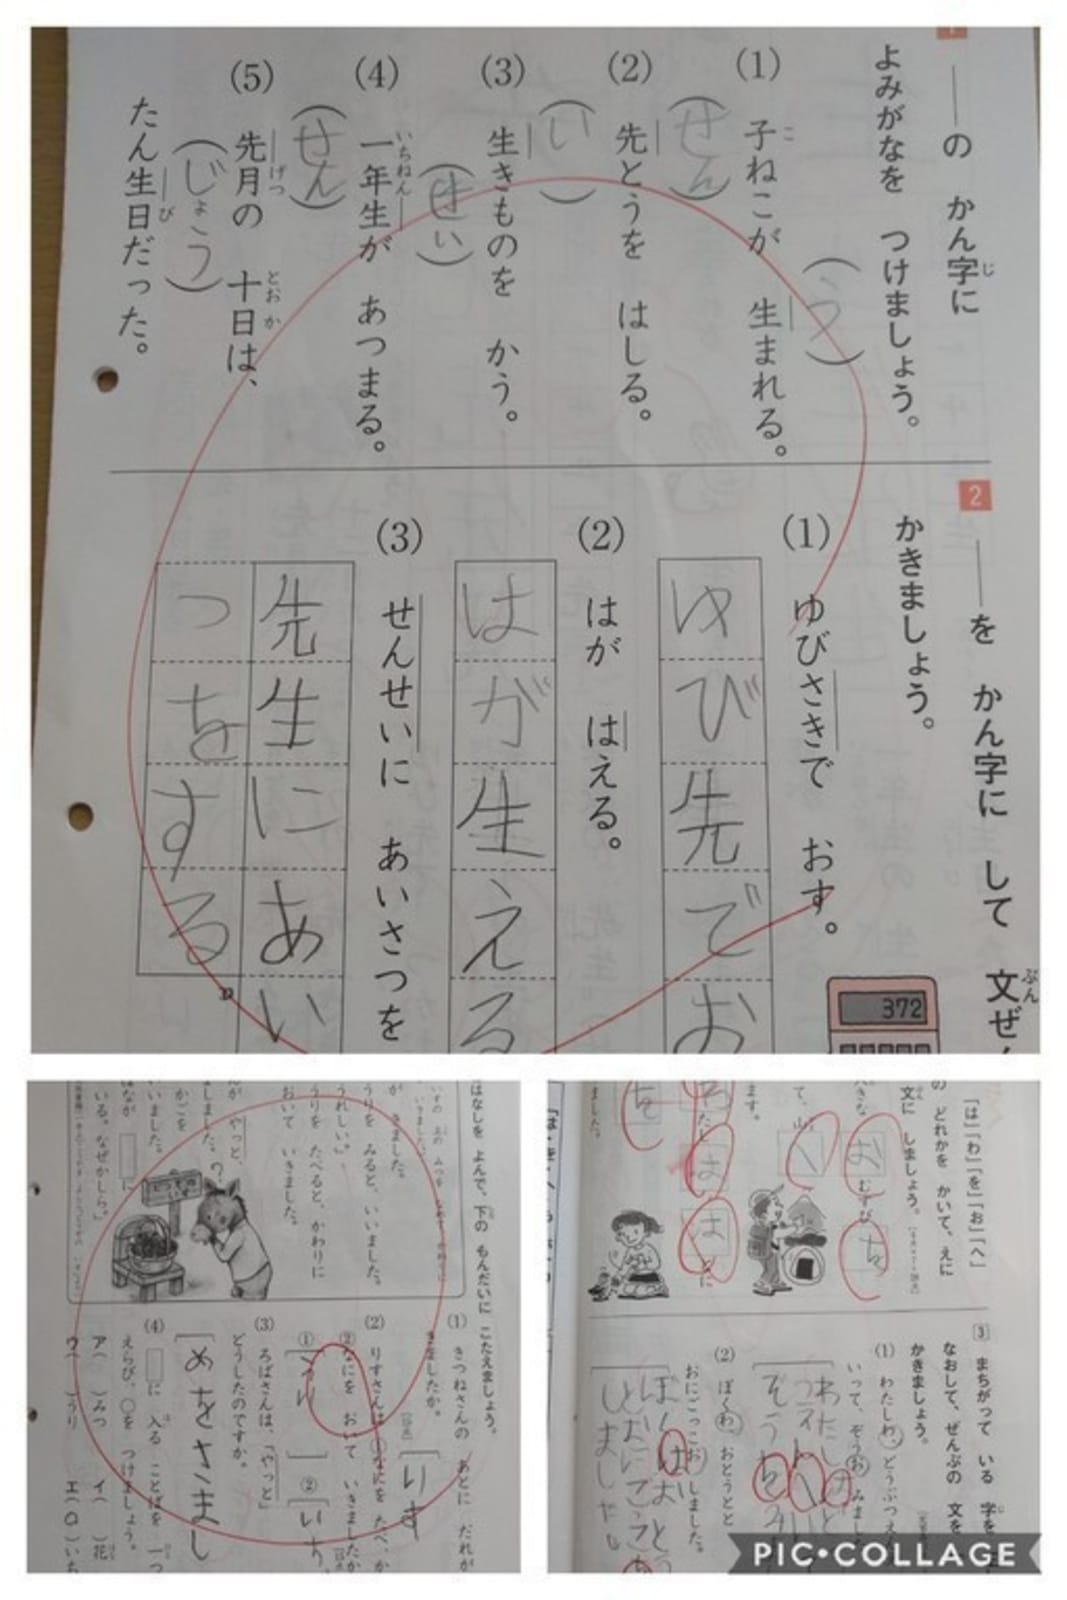 1
――の かん字に
じ
よみがなを つけましょう。
(1)
子ねこが 生まれる。
こ
(う)
(2)
先とうを はしる。
(せん)
(3)
生きものを かう。
(い)
(4)
一年生が あつまる。
いちねん
(せい)
(5)
先月の 十日は、
げつ
とおか
(せん)
たん生日だった。
び
(じょう)
2
――を かん字に して 文ぜ
ぶん
かきましょう。
(1)
ゆびさきで おす。
ゆび先でお
(2)
はが はえる。
はが生える
(3)
せんせいに あいさつを
先生にあい
つをする
372
はなしを よんで、下の もんだいに こたえましょう。
が きました。
うりを みると、いいました。
うれしい。」
うりを たべると、かわりに
おいて いきました。
やっと
ました。
かごを
いました。
いる。なぜかしら。」
(1)
きつねさんの あとに だれが
きましたか。
りす
(2)
りすさんは、①なにを たべ、か
②なにを おいて いきましたか
①
②
(3)
ろばさんは、「やっと」
どうしたのですか。
めをさまし
(4)
に 入る ことばを 一つ
えらび、○を つけましょう。
ア( )みつ
イ( )花
ウ( )うり
エ(○)いち
「は」「わ」「を」「お」「へ」
の どれかを かいて、えに
文に しましょう。
お
むすび
を
て、山
へ
ます。
わ
たし
は
は
に
を
ました。
3
まちがって いる 字を
じ
なおして、ぜんぶの 文を
かきましょう。
(1)
わたしわ、どうぶつえん
いって、ぞうお みまし
わたしは
へ
ぞうを
(2)
ぼくわ、おとうとと
おにごっこお しました。
ぼくはおとう
とおにごっこを
しました
PIC•COLLAGE